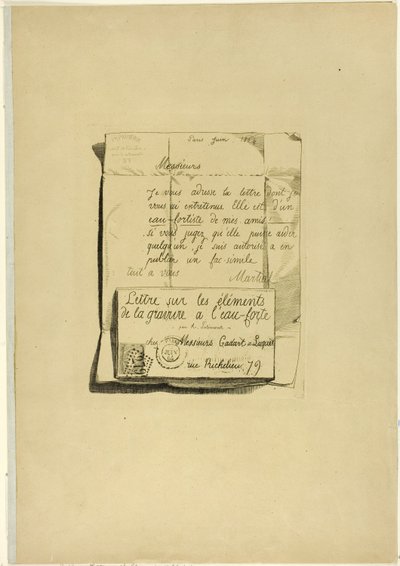 Paris Juin
Messieurs
Je vous adresse la lettre dont je
vous ai entretenus. Elle est d'un
eau-fortiste de mes amis;
si vous jugez qu'elle puisse aider
quelqu'un je suis autorisé a en
publier un fac-simile
tout a vous
Martial
Lettre sur les éléments
de la gravure a l'eau-forte
par
chez Messieurs Cadart et Luquet
rue Richelieu, 79